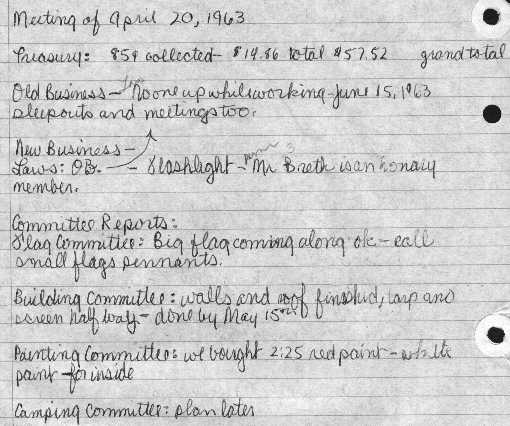 Meeting of April 20, 1963
Treasury: 85¢ collected - $14.86 total $57.52 grand total
Old Business - No one up while working - June 15, 1963
sleepouts and meetings too.
New Business -
Laws: O.B. - Flashlight - Mr. Breth is an honary
member.
Committee Reports:
Flag Committee: Big flag coming along ok - call
small flags pennants.
Building Committee: walls and roof finished, tarp and
screen half way - done by May 15th
Painting Committee: we bought 2:25 red paint - white
paint for inside
Camping Committee: plan later